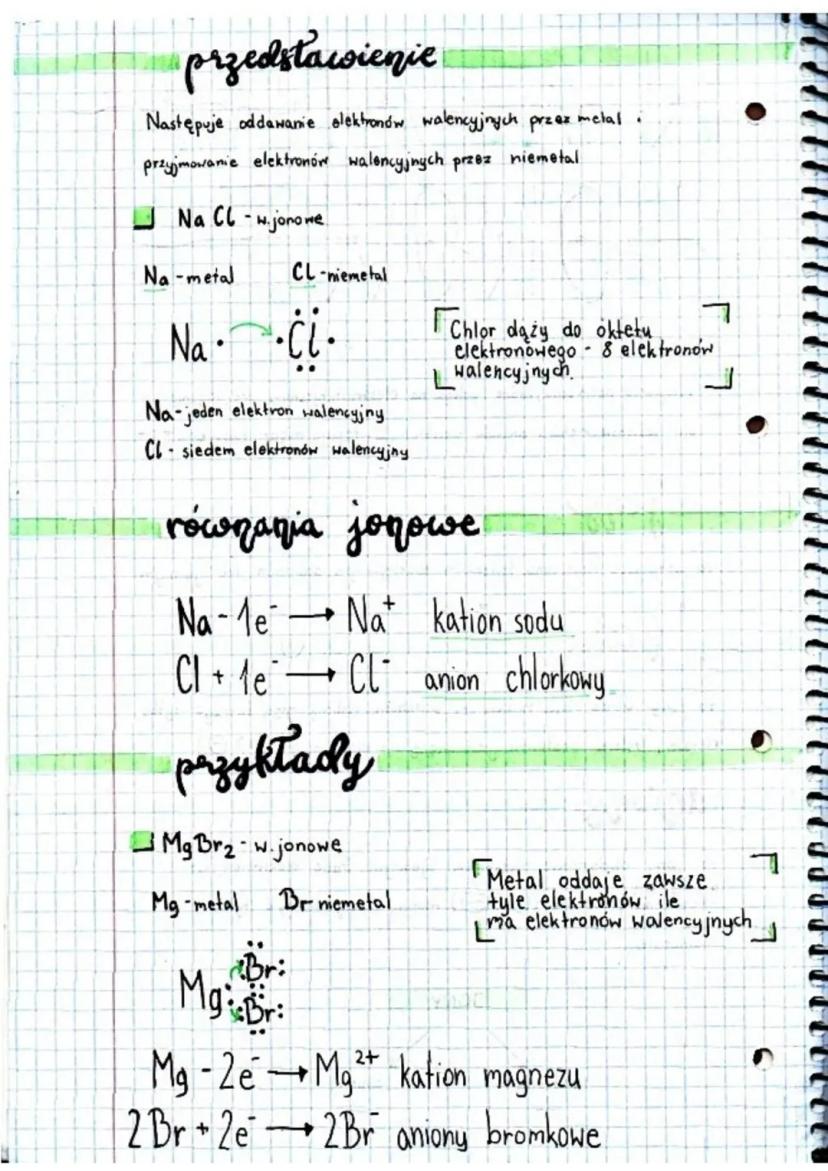 przedstawienie
Następuje oddawanie elektronów walencyjnych przez metal i
przyjmowanie elektronów walencyjnych przez niemetal
NaCl - w. jonowe
Na - metal Cl - niemetal
Na · ·Cl·
Chlor dąży do oktetu
elektronowego - 8 elektronów
walencyjnych.
Na - jeden elektron walencyjny
Cl - siedem elektronów walencyjny
równania jonowe
Na - 1e⁻ → Na⁺ kation sodu
Cl + 1e⁻ → Cl⁻ anion chlorkowy
przykłady
MgBr₂ - w. jonowe
Mg - metal Br niemetal
Metal oddaje zawsze
tyle elektronów, ile
ma elektronów walencyjnych
Br:
Mg:
Br:
Mg - 2e⁻ → Mg²⁺ kation magnezu
2Br + 2e⁻ → 2Br⁻ aniony bromkowe